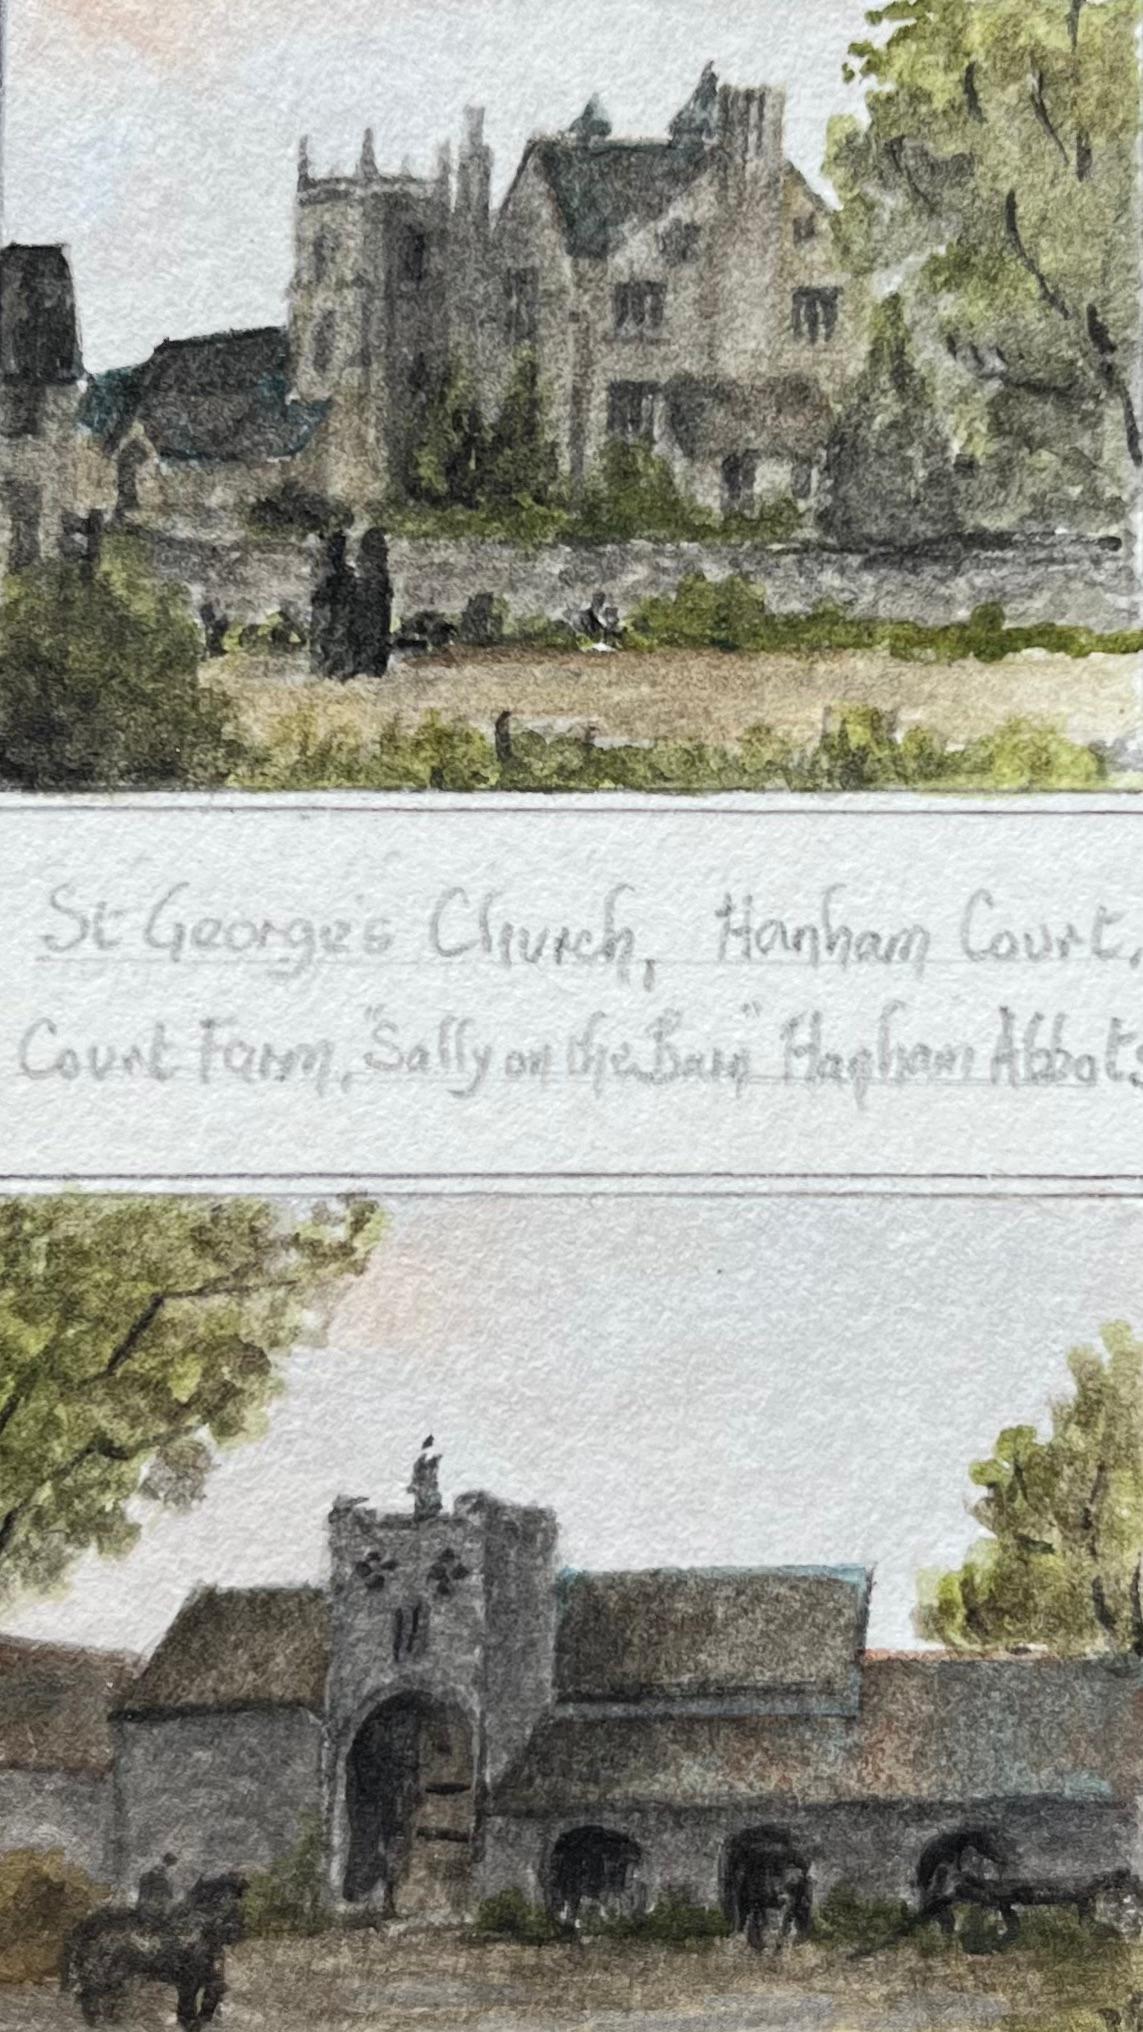 St George's Church, Hanham Court,
Court Farm, "Sally on the Barn" Hanham Abbots